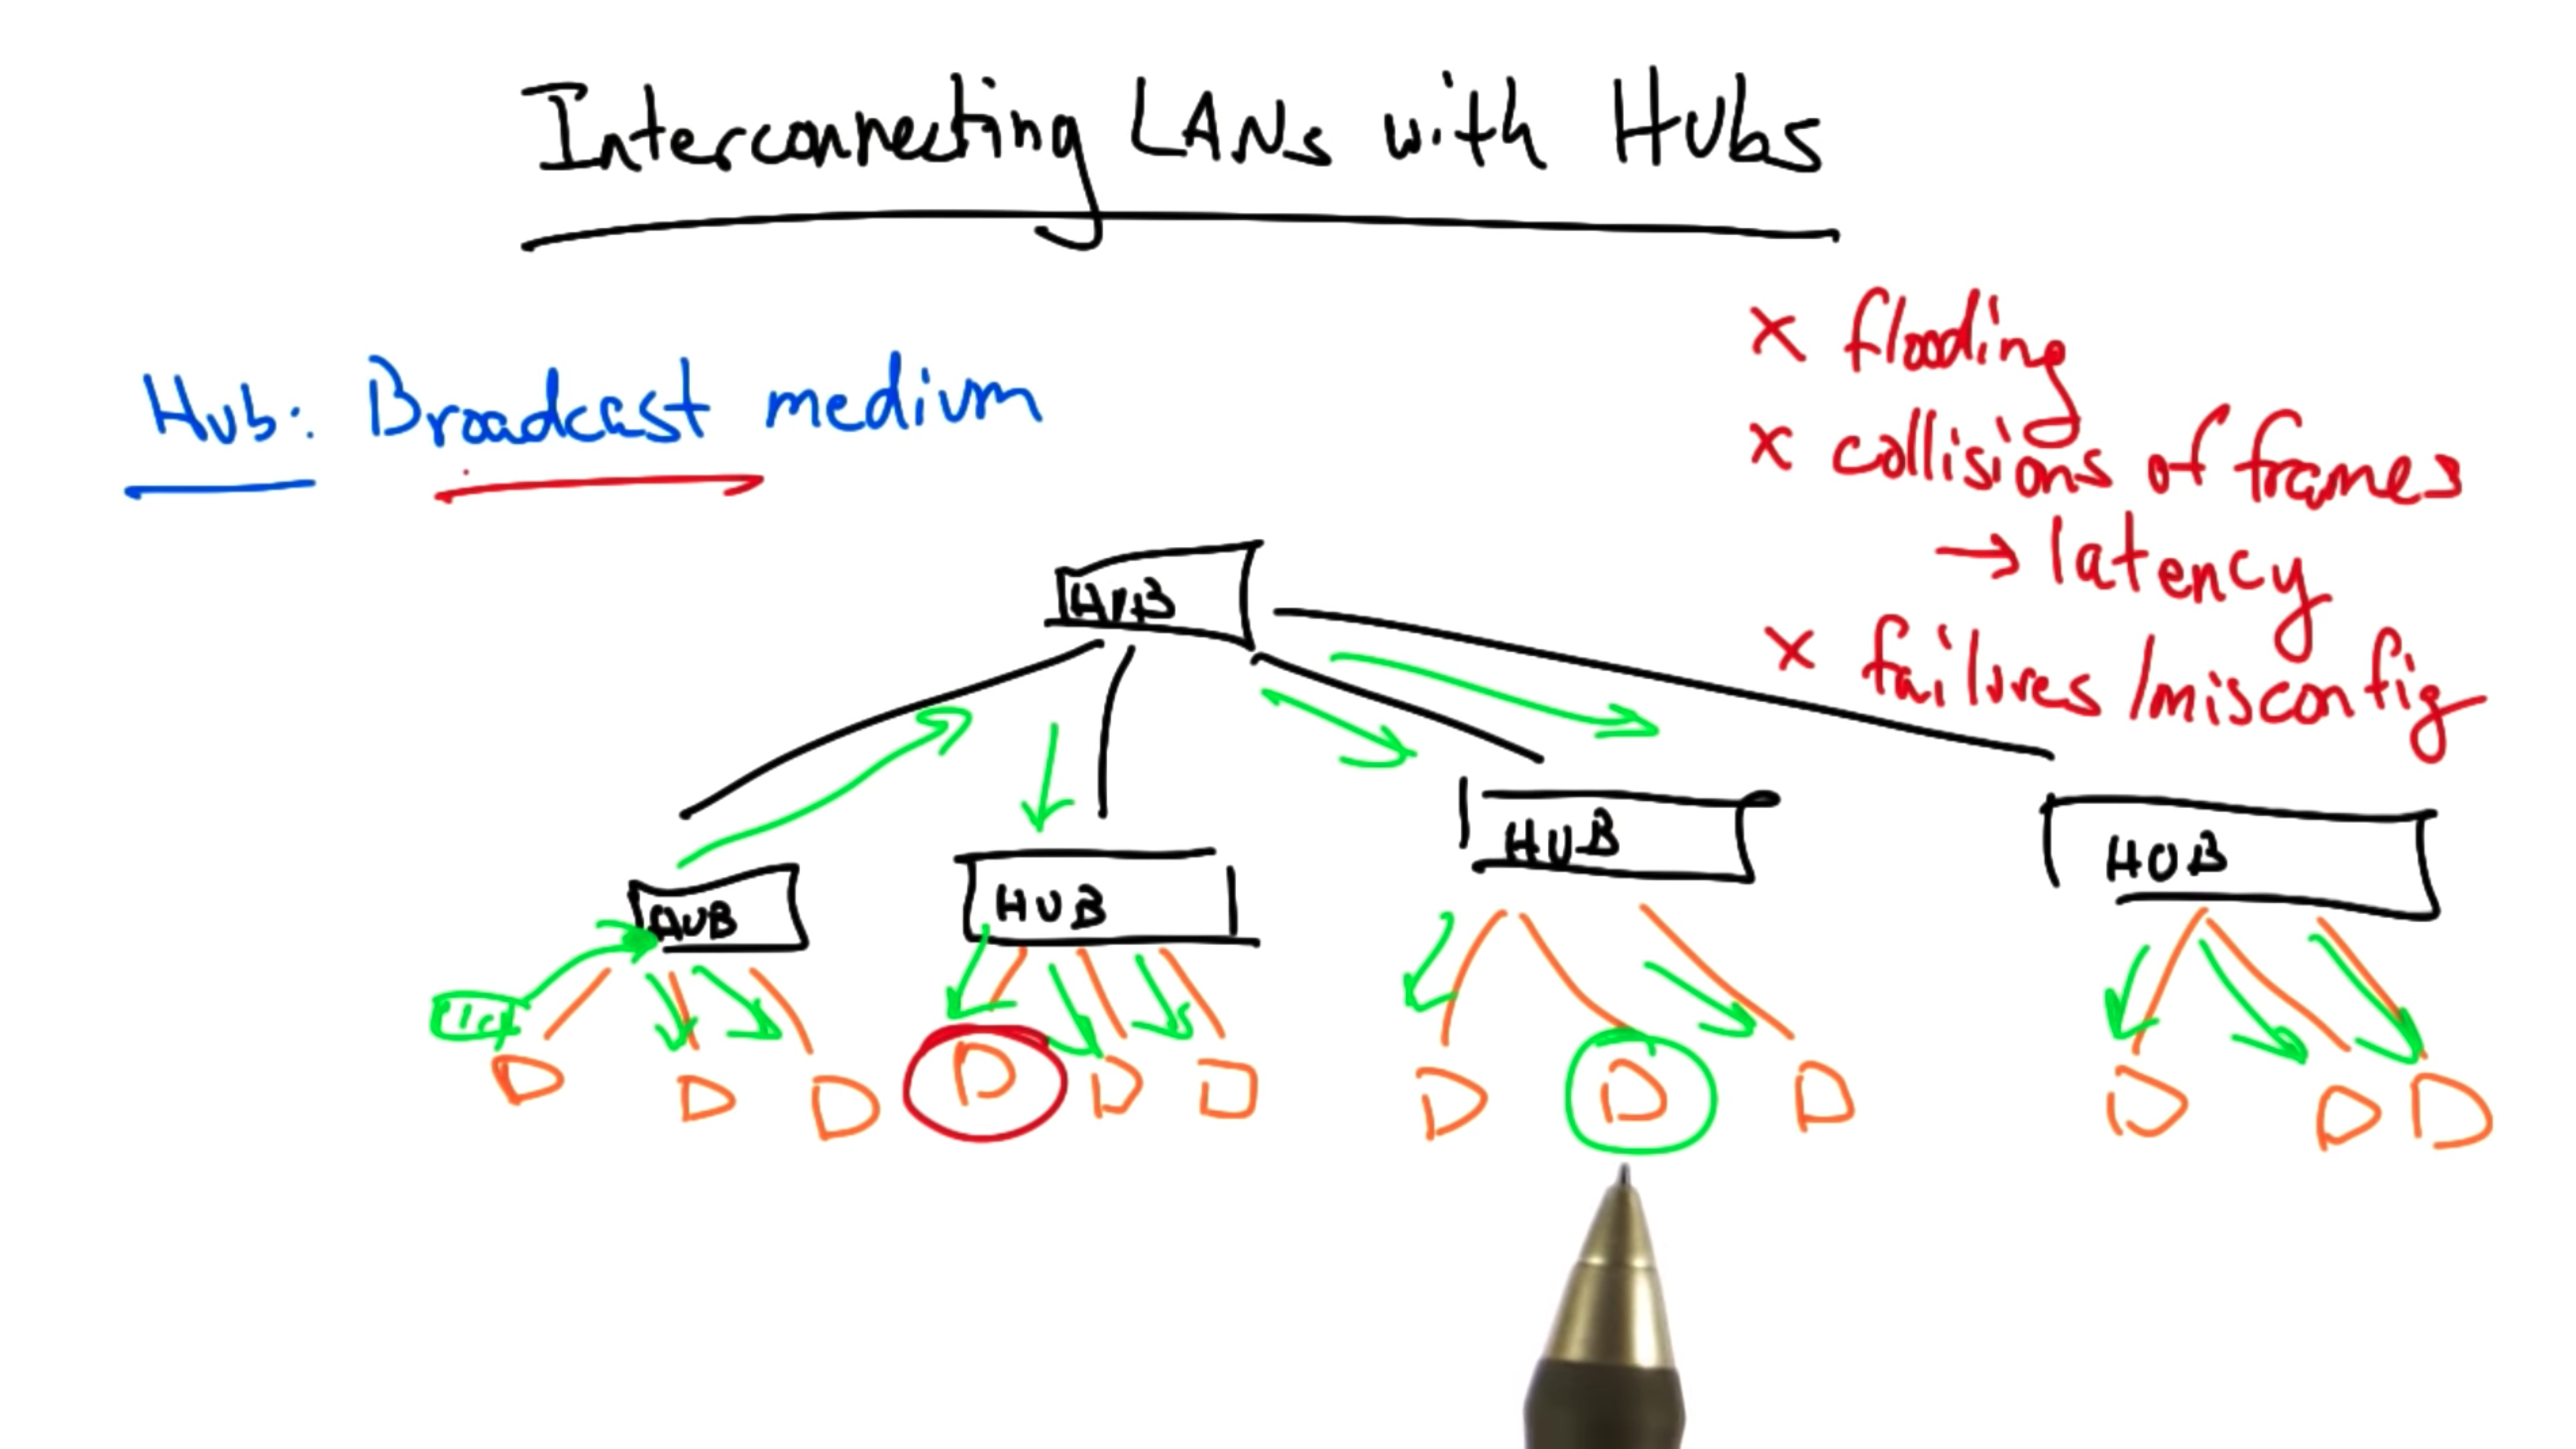 Interconnecting LANs with HUbs
Hub: Broadcast medium
x flooding
x collisions of frames
→ latency
x failures/misconfig
HUB
HUB
HUB
HUB
HUB
D D D D D D D D D D D D